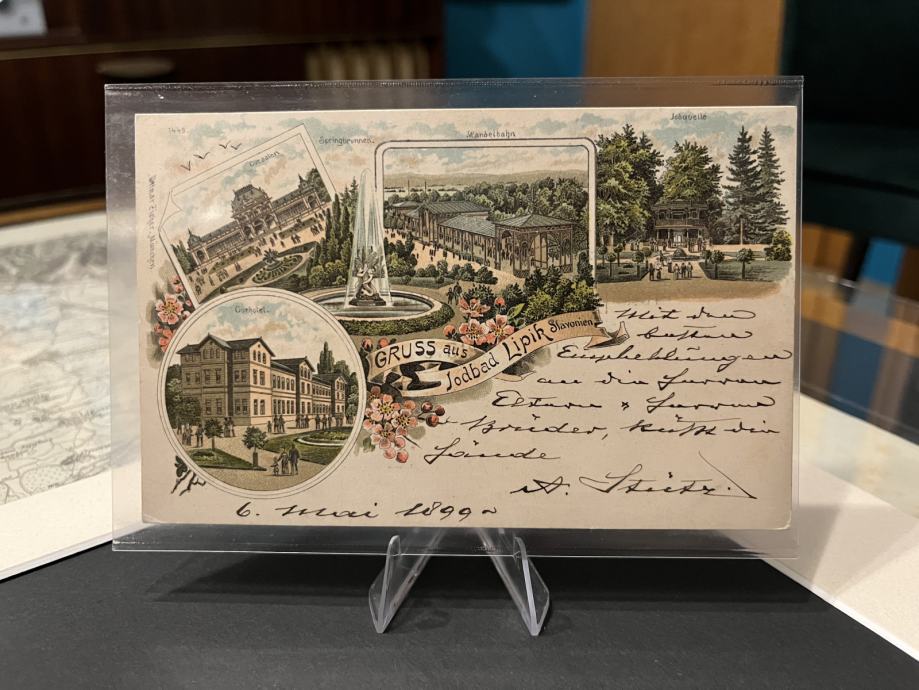 1445
Cursalon.
Springbrunnen.
Wandelbahn
Jodquelle
Curhotel.
GRUSS aus
Jodbad Lipik Slavonien.
Mit den
besten
Empfehlungen
an die Herren
Eltern & Herren
Brüder, küßt die
Hände
A.
6. Mai 1899